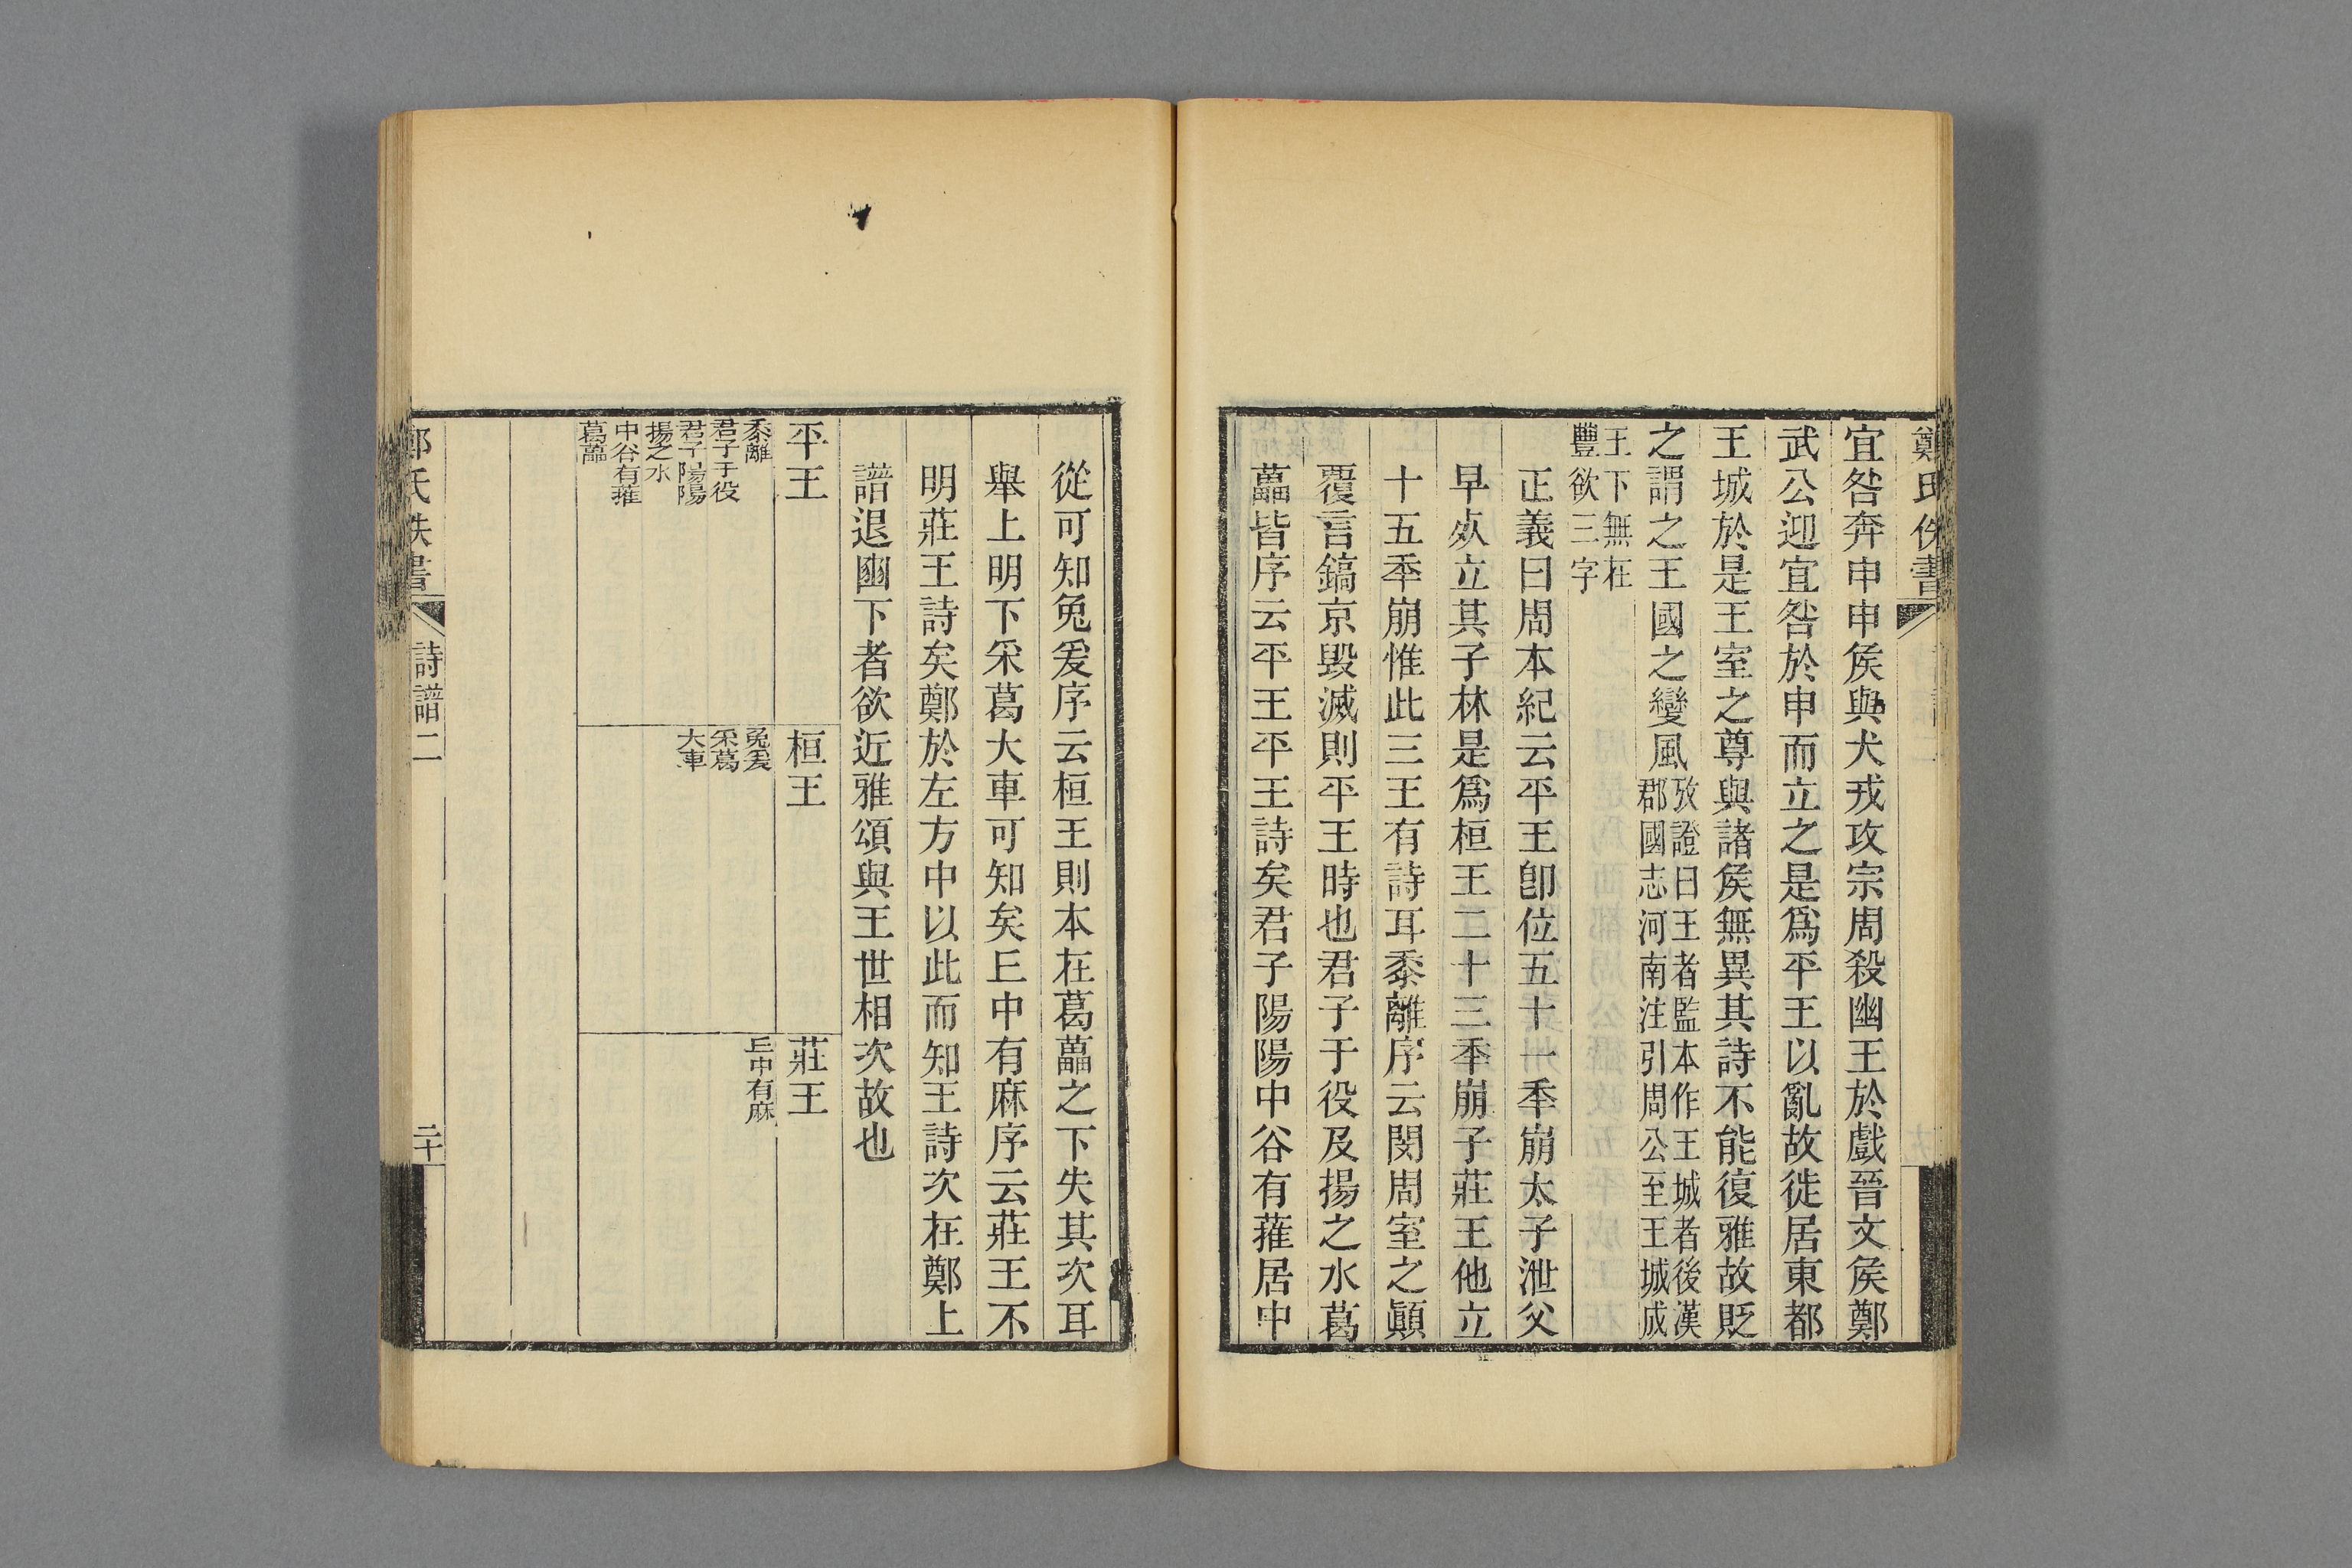 鄭氏佚書
宜咎奔申申矦與犬戎攻宗周殺幽王於戲晉文矦鄭
武公迎宜咎於申而立之是爲平王以亂故徙居東都
王城於是王室之尊與諸矦無異其詩不能復雅故貶
之謂之王國之變風
攷證曰王者監本作王城者後漢
郡國志河南注引周公至王城成
王下無在
豐欲三字
正義曰周本紀云平王卽位五十一秊崩太子泄父
早𣦸立其子林是爲桓王二十三秊崩子莊王他立
十五秊崩惟此三王有詩耳黍離序云閔周室之顚
覆言鎬京毀滅則平王時也君子于役及揚之水葛
藟皆序云平王平王詩矣君子陽陽中谷有蓷居中
從可知兔爰序云桓王則本在葛藟之下失其次耳
舉上明下采葛大車可知矣𠀉中有麻序云莊王不
明莊王詩矣鄭於左方中以此而知王詩次在鄭上
譜退豳下者欲近雅頌與王世相次故也
平王
黍離
君子于役
君子陽陽
揚之水
中谷有蓷
葛藟
桓王
兔爰
采葛
大車
莊王
𠀉中有麻
鄭氏佚書
詩譜二
二十